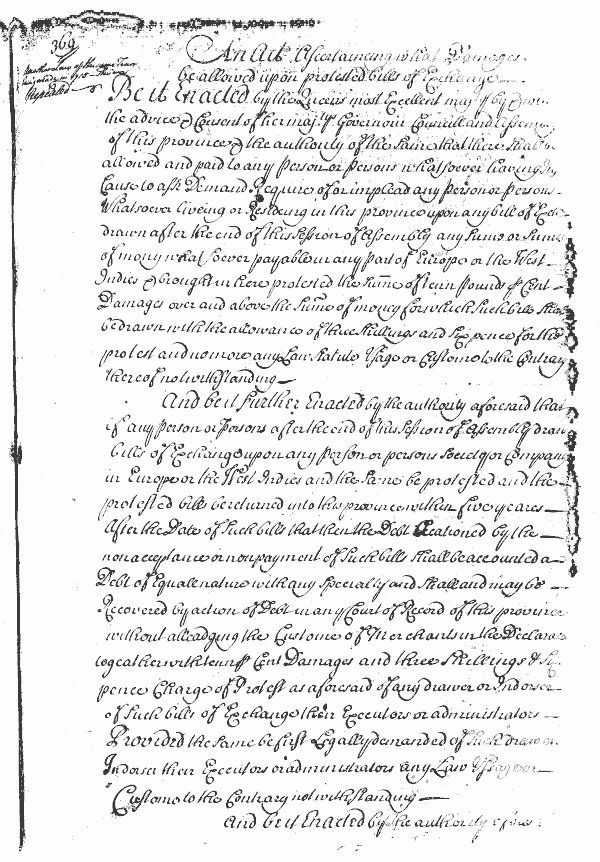 369
Another Law of the same Tenor
Repealed
An Act Ascertaineing what Damages
be allowed upon protested bills of Exchange
Be it Enacted by the Queens most Excellent maj.ty by & with
the advice & Consent of her maj.tys Governour Councill and Assembly
of this province & the authority of the Same that there shall be
allowed and paid to any Person or Persons whatsoever haveing any
Cause to ask Demand Require of or implead any Person or Persons
Whatsoever liveing or Resideing in this province upon any bill of Exch
drawn after the end of this Session of Assembly any Sume or Sums
of mony whatsoever payable in any part of Europe or the West
Indies & brought in here protested the Sume of tenn pounds p Cent
Damages over and above the Sume of money for which Such bill shall
be drawn with the allowance of three shillings and Six pence for the
protest and no more any Law Statute Usage or Custome to the Contrary
thereof notwithstanding
And be it Further Enacted by the authority aforesaid that
if any Person or Persons after the end of this Session of Assembly draw
bills of Exchange upon any Person or persons Society or Company
in Europe or the West Indies and the Same be protested and the
protested bills be returned into this province within five yeares
After the Date of Such bills that then the Debt Ocationed by the
non acceptance or non payment of Such bills shall be accounted a
Debt of Equale nature with any Specialty and shall and may be
Recovered by action of Debt in any Court of Record of this province
without alleadging the Custome of Merchants in the Declarac
togeather with tenn p Cent Damages and three Shillings & Six
pence Charge of Protest as aforesaid of any drawer or Indorser
of Such bills of Exchange their Executors or administrators
Provided the Same be first Legally demanded of Such drawer
Indorser their Executors or administrators any Law Usage or
Custome to the Contrary notwithstanding
And be it Enacted by the authority afores